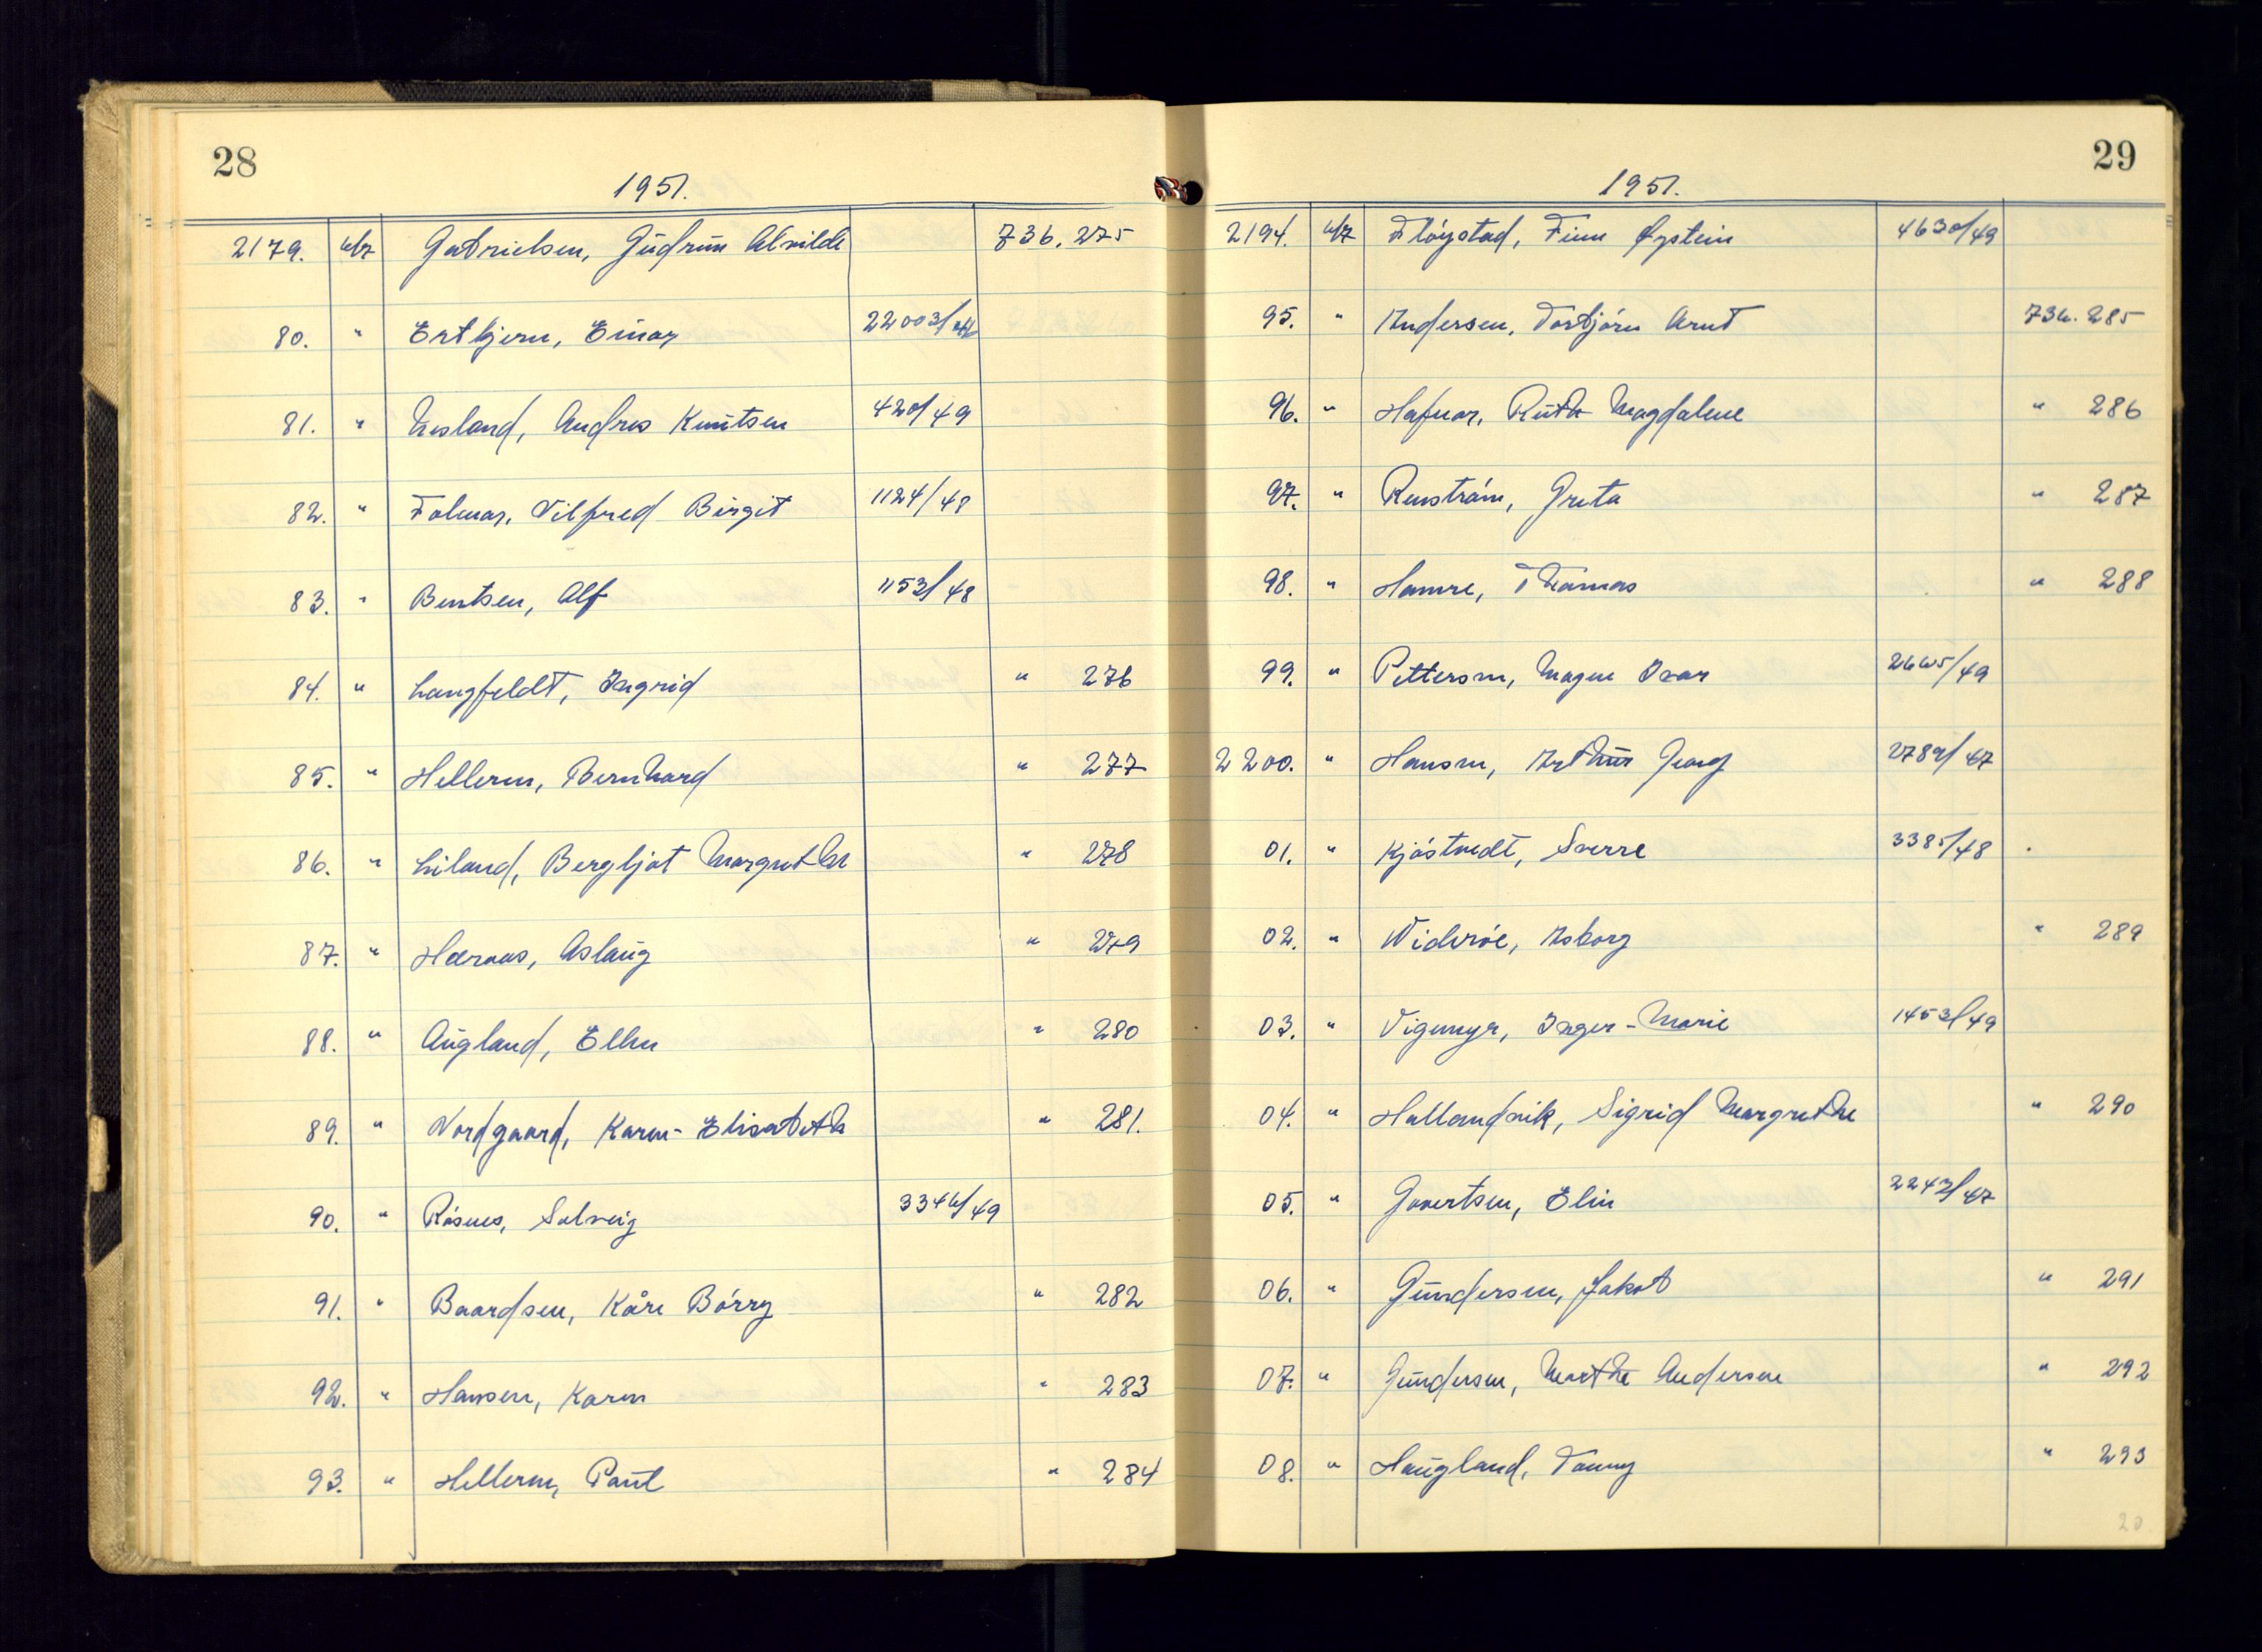 28
1951.
2179. 6/7 Gabrielsen, Gudrun Alvilde 736. 275
80. " Ertkjern, Einar 22003/46
81. " Nesland, Andres Knutsen 420/49
82. " Folmar, Vilfred Birgit 1124/48
83. " Bentsen, Alf 1153/48
84. " Langfeldt, Ingrid " 276
85. " Helleren, Bernhard " 277
86. " Liland, Bergljot Margrethe " 278
87. " Hæraas, Aslaug " 279
88. " Augland, Ellen " 280
89. " Nordgaard, Karen-Elisabeth " 281.
90. " Røsnes, Solveig 3346/49
91. " Baardsen, Kåre Børry " 282
92. " Hansen, Karen " 283
93. " Helleren, Paul " 284
29
1951.
2194. 6/7 Fløystad, Finn Øystein 4630/49
95. " Andersen, Torbjørn Arnt 736. 285
96. " Hafnor, Ruth Magdalene " 286
97. " Renstrøm, Greta " 287
98. " Hamre, Thomas " 288
99. " Pettersen, Magne Ivar 2665/49
2200. " Hansen, Arthur Georg 2789/47
01. " Kjøstvedt, Sverre 3385/48
02. " Widerøe, Asborg " 289
03. " Vigemyr, Inger-Marie 1453/49
04. " Hallandvik, Sigrid Margrethe " 290
05. " Govertsen, Elin 2243/47
06. " Gundersen, Jakob " 291
07. " Gundersen, Marthe Andersen " 292
08. " Haugland, Tanny " 293
20